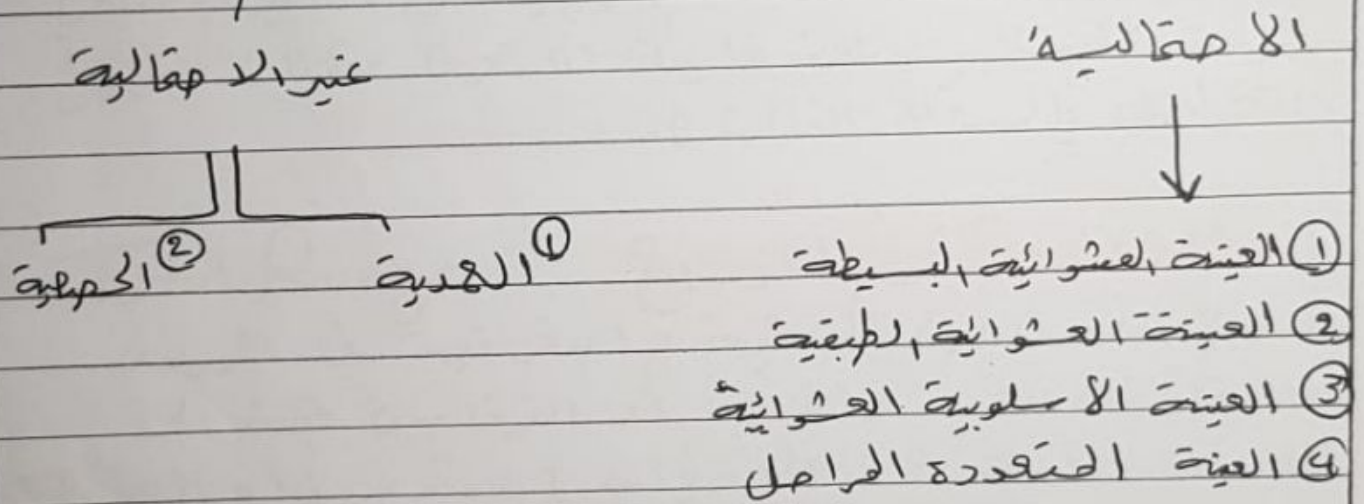 الاحتمالية
غير الاحتمالية
① العينة العشوائية البسيطة
② العينة العشوائية الطبقية
③ العينة الاسلوبية العشوائية
④ العينة المتعددة المراحل
① العمدية
② الحصصية